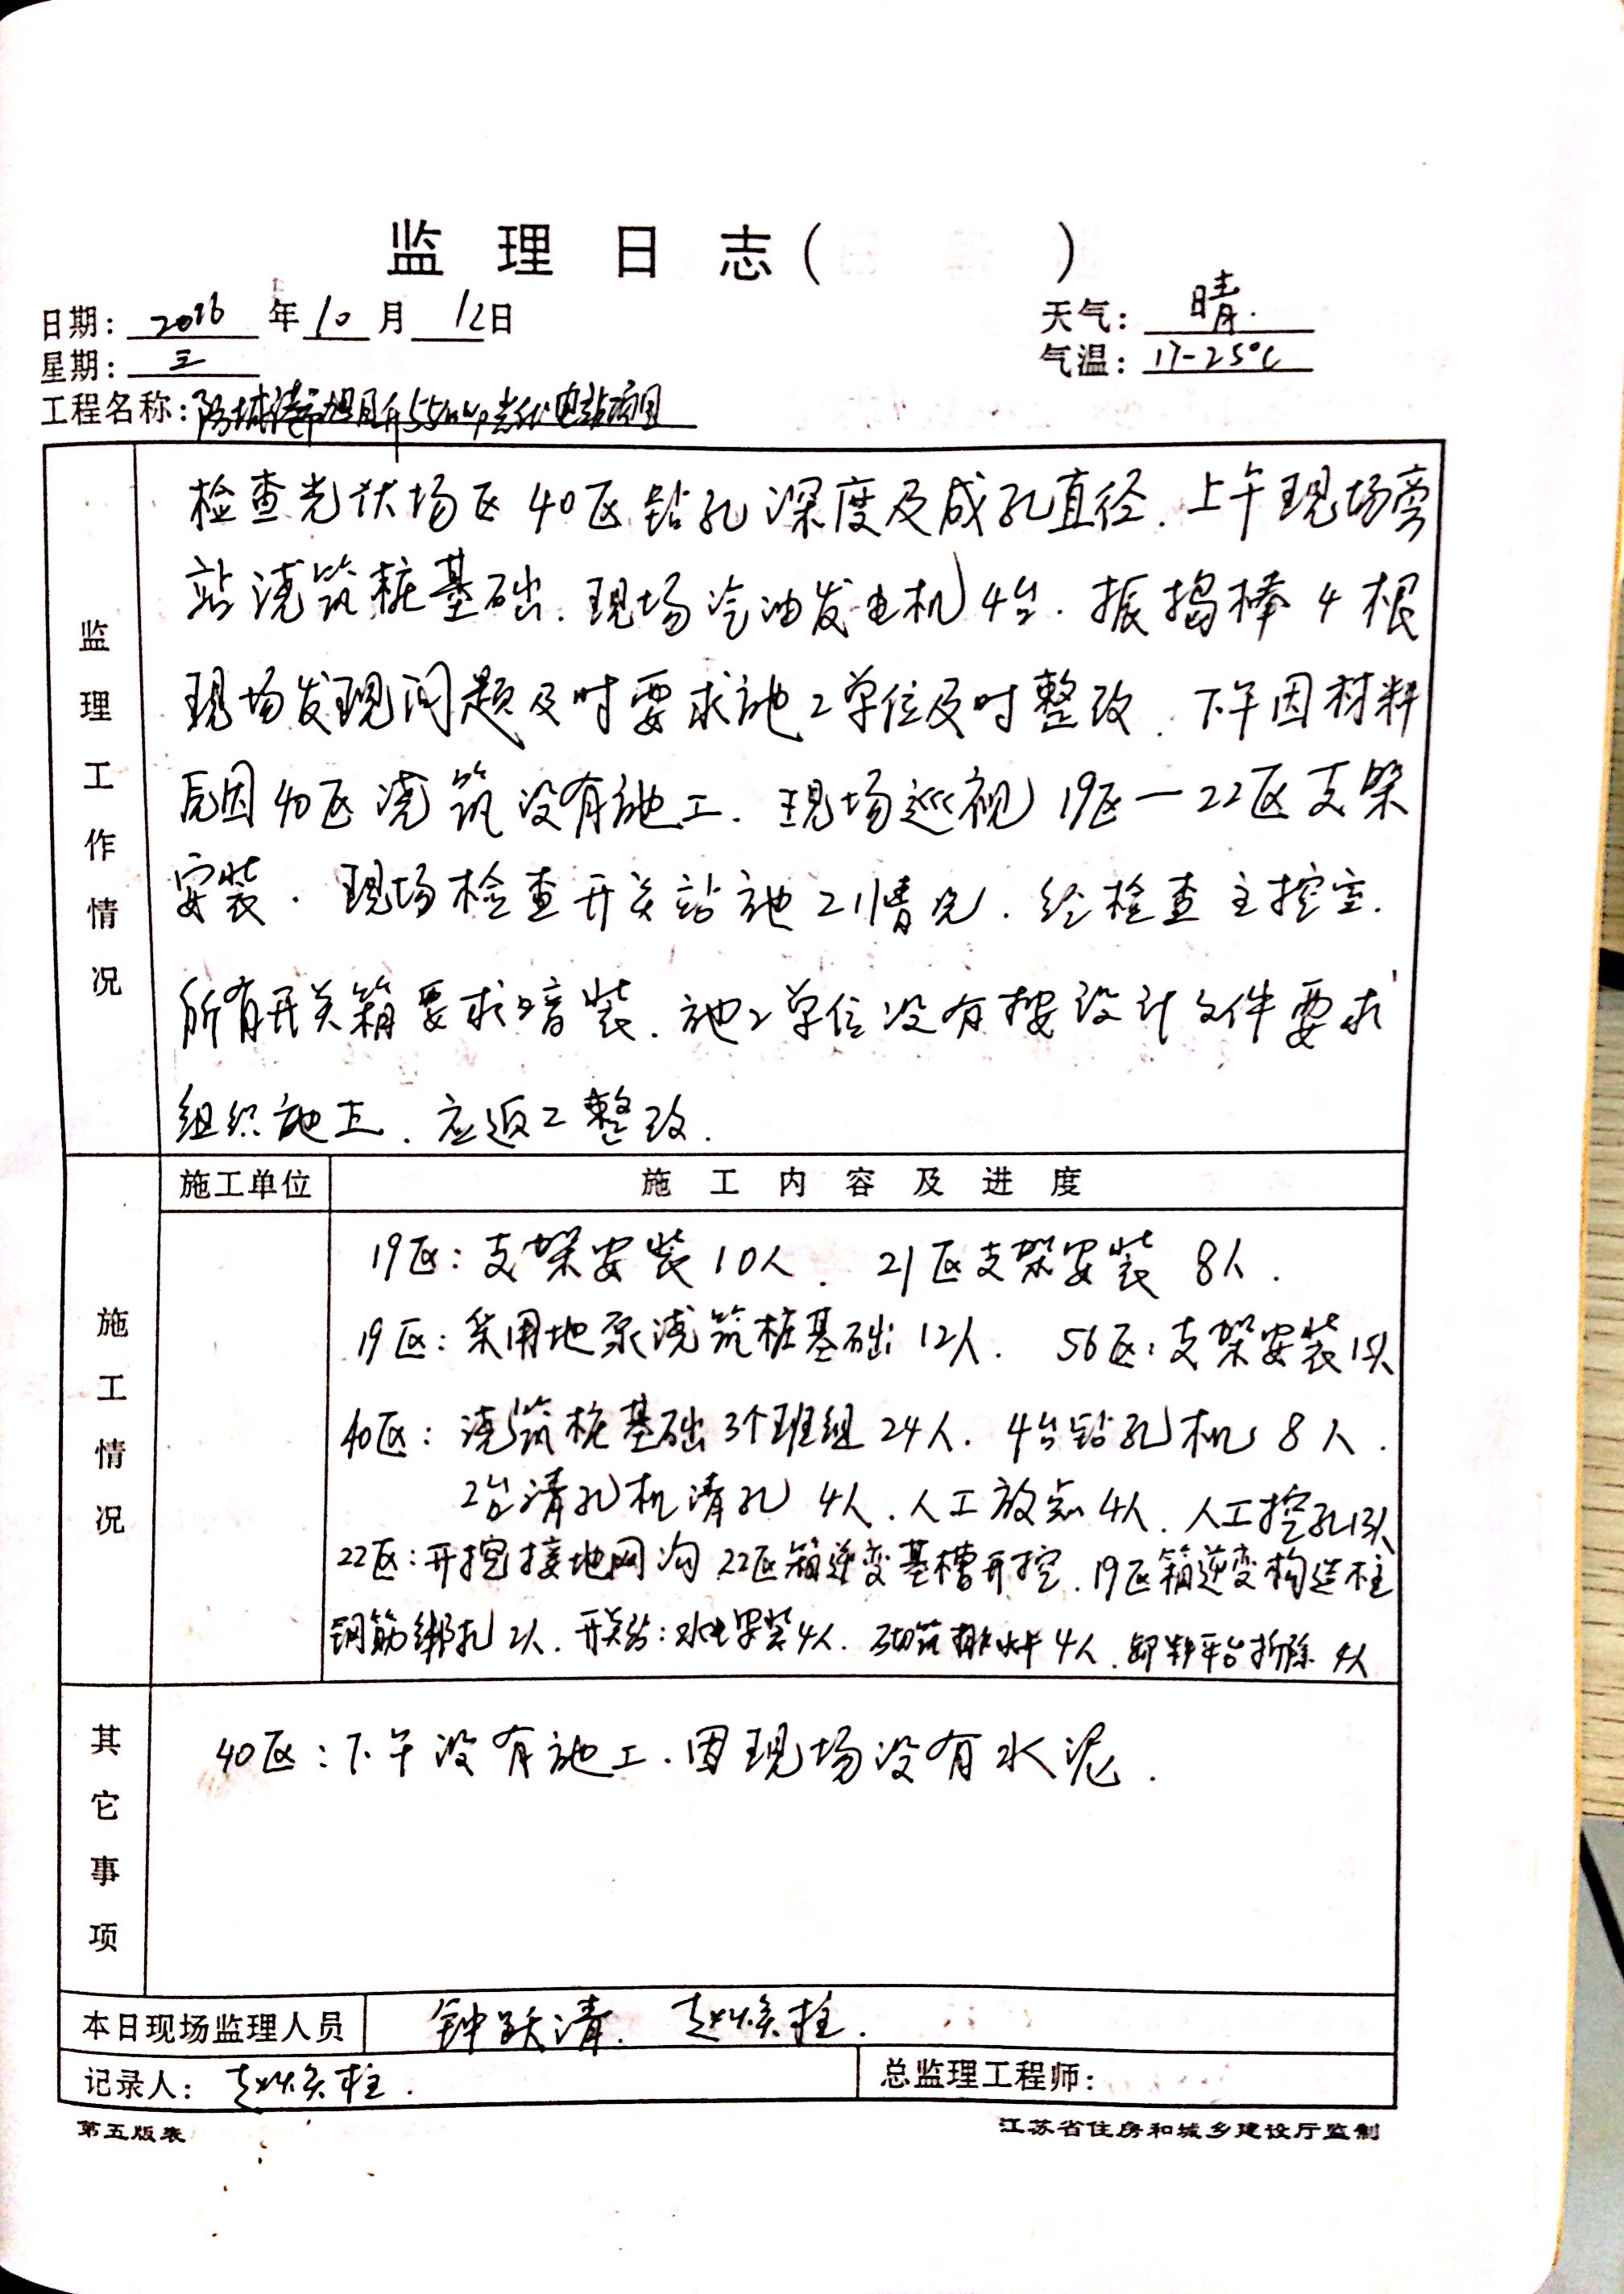 监理日志（ ）
日期：2016年10月12日
天气：晴.
星期：三
气温：17-25℃
工程名称：防城港市旭日升55mwp光伏电站项目
监理工作情况
检查光伏场区40区钻孔深度及成孔直径.上午现场旁
站浇筑桩基础.现场汽油发电机4台.振捣棒4根
现场发现问题及时要求施工单位及时整改.下午因材料
原因40区浇筑没有施工.现场巡视19区—22区支架
安装.现场检查开关站施工情况.经检查主控室.
所有开关箱要求暗装.施工单位没有按设计文件要求
组织施工.应返工整改.
施工单位
施工内容及进度
施工情况
19区：支架安装10人.21区支架安装8人.
19区：采用地泵浇筑桩基础12人.56区：支架安装15人
40区：浇筑桩基础3个班组24人.4台钻孔机8人.
2台清孔机清孔4人.人工放点4人.人工挖孔13人
22区：开挖接地网沟.22区箱逆变基槽开挖.19区箱逆变构造柱
钢筋绑扎2人.开关站：水电安装4人.砌筑排水井4人.卸料平台拆除4人
其它事项
40区：下午没有施工.因现场没有水泥.
本日现场监理人员
钟跃清.赵焕柱.
记录人：赵焕柱.
总监理工程师：
第五版表
江苏省住房和城乡建设厅监制